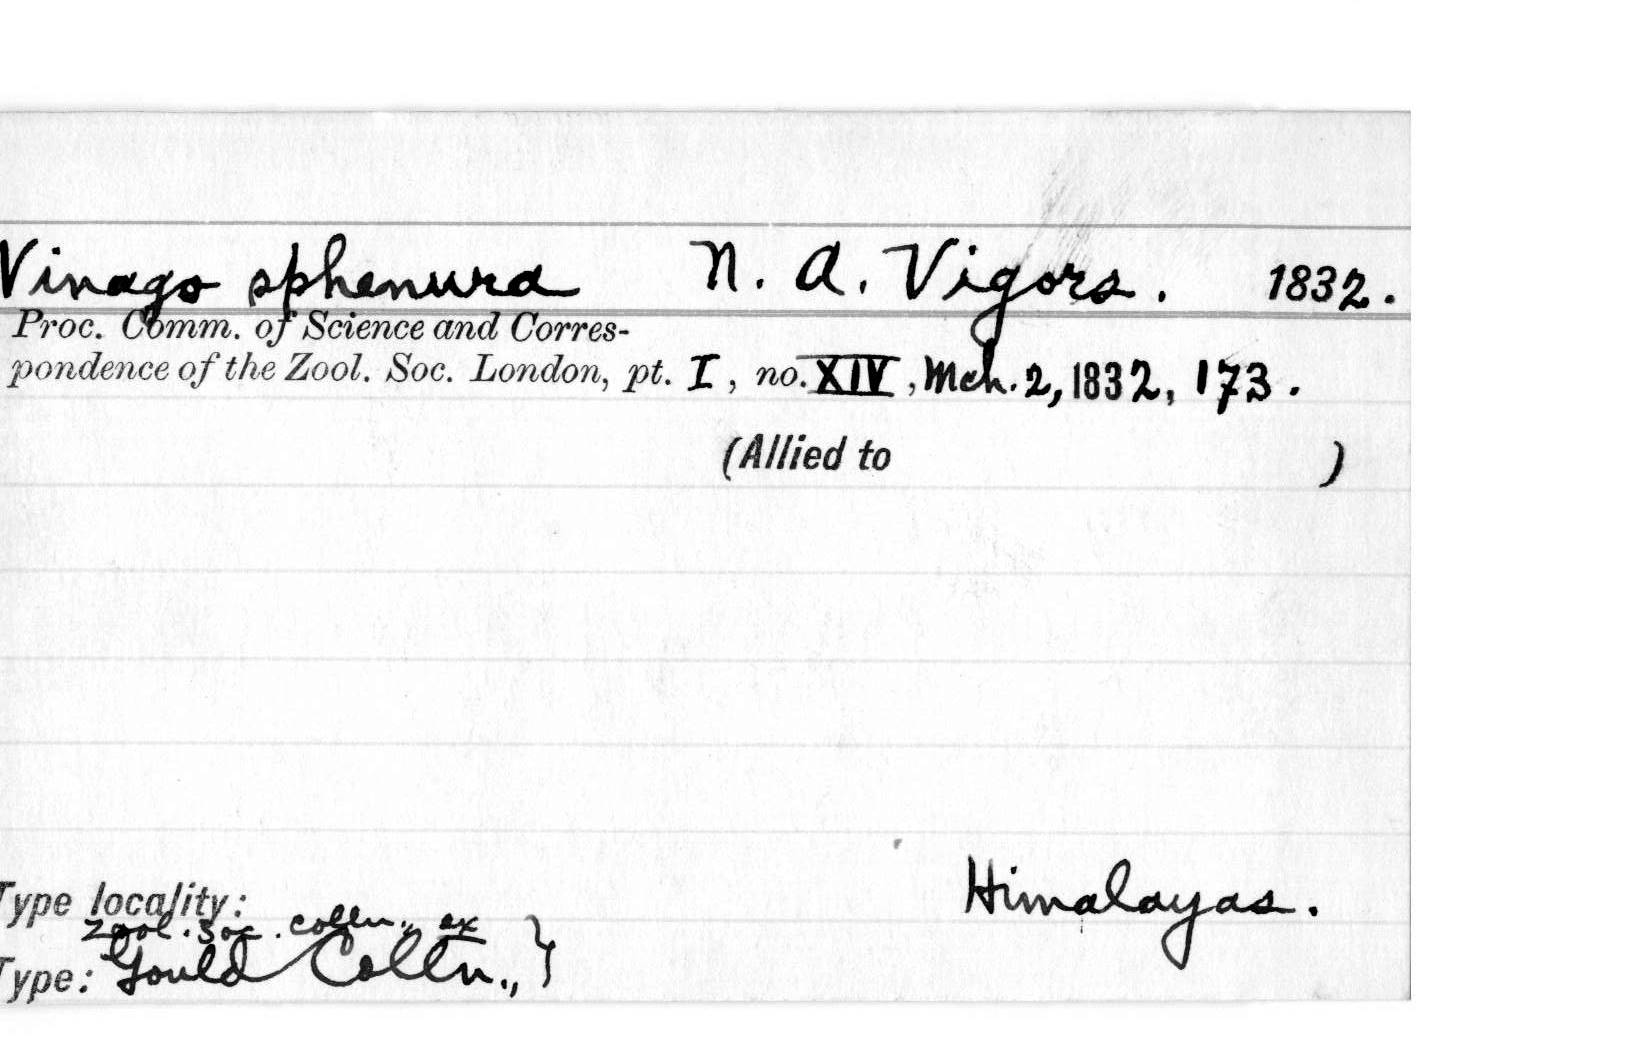 Vinago sphenura N. A. Vigors. 1832.
Proc. Comm. of Science and Corres-
pondence of the Zool. Soc. London, pt. I, no. XIV, Mch. 2, 1832, 173.
(Allied to )
Himalayas.
Type locality:
Zool. Soc. colln., ex
Type: Gould Colln., }